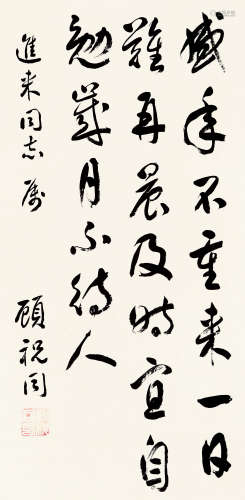 盛年不重来一日
難再晨及時宜自
勉歲月不待人
進来同志属
顧祝同